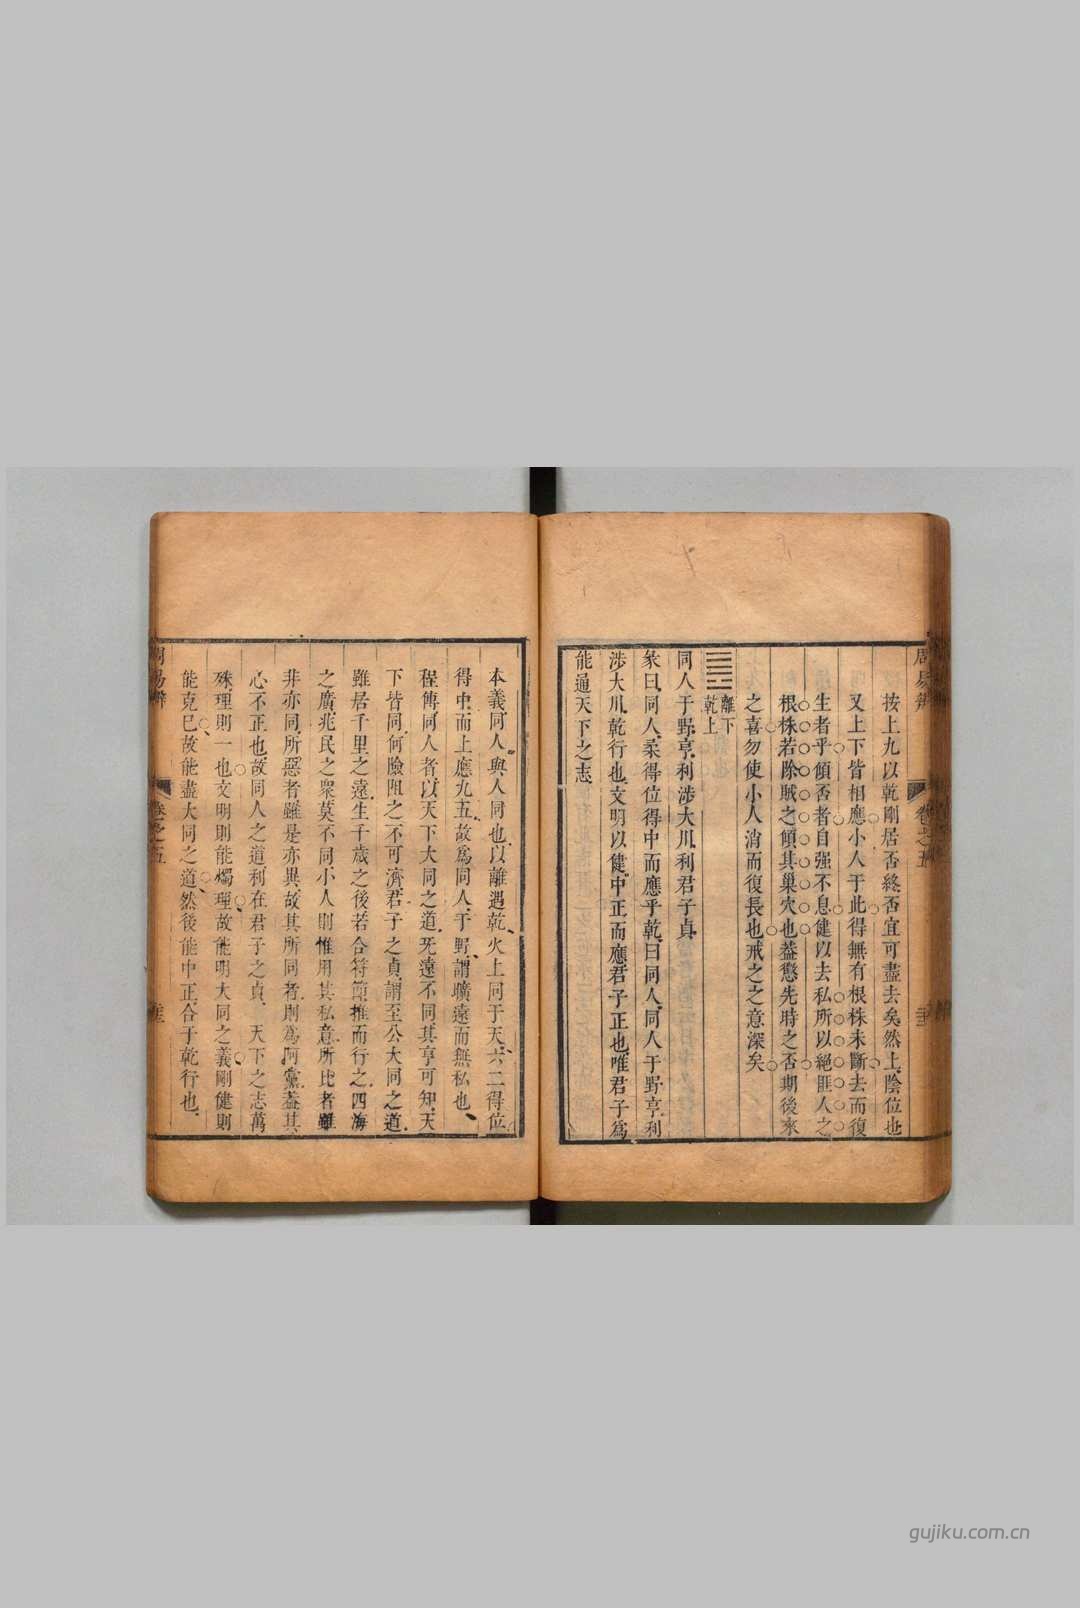 周易辨
卷之五
按上九以乾剛居否終否宜可盡去矣然上陰位也
又上下皆相應小人于此得無有根株未斷去而復
生者乎傾否者自强不息健以去私所以絕匪人之
根株若除賊之傾其巢穴也葢懲先時之否期後來
之喜勿使小人消而復長也戒之之意深矣
離下
乾上
同人于野亨利涉大川利君子貞
彖曰同人柔得位得中而應乎乾曰同人同人于野亨利
涉大川乾行也文明以健中正而應君子正也唯君子爲
能通天下之志
本義同人與人同也以離遇乾火上同于天六二得位
得中而上應九五故爲同人于野謂曠遠而無私也
程傳同人者以天下大同之道旡遠不同其亨可知天
下皆同何險阻之不可濟君子之貞謂至公大同之道
雖居千里之遠生千歲之後若合符節推而行之四海
之廣兆民之衆莫不同小人則惟用其私意所比者雖
非亦同所惡者雖是亦異故其所同者則爲阿黨葢其
心不正也故同人之道利在君子之貞 天下之志萬
殊理則一也文明則能燭理故能明大同之義剛健則
能克巳故能盡大同之道然後能中正合于乾行也
周易辨
卷之五
gujiku.com.cn